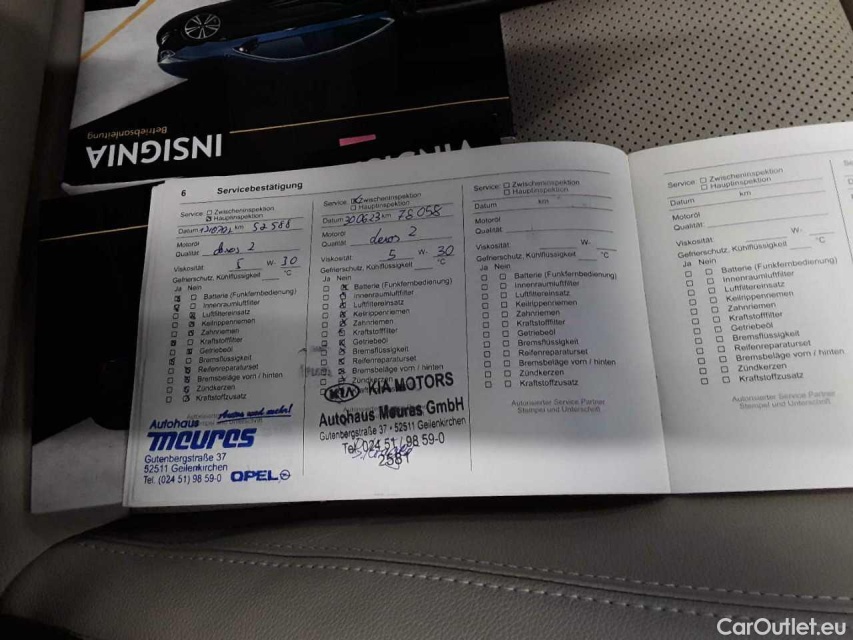 INSIGNIA
Betriebsanleitung
6 Servicebestätigung
Service: Zwischeninspektion
Hauptinspektion
Datum km 52 588
Motoröl
Qualität dexos 2
Viskosität 5 W- 30
Gefrierschutz, Kühlflüssigkeit °C
Ja Nein
Batterie (Funkfernbedienung)
Innenraumluftfilter
Luftfiltereinsatz
Keilrippenriemen
Zahnriemen
Kraftstofffilter
Getriebeöl
Bremsflüssigkeit
Reifenreparaturset
Bremsbeläge vorn / hinten
Zündkerzen
Kraftstoffzusatz
Autohaus Autos und mehr!
meures
Gutenbergstraße 37
52511 Geilenkirchen
Tel. (024 51) 98 59-0 OPEL
Service: Zwischeninspektion
Hauptinspektion
Datum 300623 km 78058
Motoröl
Qualität dexos 2
Viskosität 5 W- 30
Gefrierschutz, Kühlflüssigkeit °C
Ja Nein
Batterie (Funkfernbedienung)
Innenraumluftfilter
Luftfiltereinsatz
Keilrippenriemen
Zahnriemen
Kraftstofffilter
Getriebeöl
Bremsflüssigkeit
Reifenreparaturset
Bremsbeläge vorn / hinten
Zündkerzen
KIA KIA MOTORS
Autohaus Meures GmbH
Gutenbergstraße 37 · 52511 Geilenkirchen
Tel. 024 51 / 98 59-0
2581
Service: Zwischeninspektion
Hauptinspektion
Datum km
Motoröl
Qualität
Viskosität W-
Gefrierschutz, Kühlflüssigkeit °C
Ja Nein
Batterie (Funkfernbedienung)
Innenraumluftfilter
Luftfiltereinsatz
Keilrippenriemen
Zahnriemen
Kraftstofffilter
Getriebeöl
Bremsflüssigkeit
Reifenreparaturset
Bremsbeläge vorn / hinten
Zündkerzen
Kraftstoffzusatz
Autorisierter Service Partner
Stempel und Unterschrift
Service: Zwischeninspektion
Hauptinspektion
Datum km
Motoröl
Qualität
Viskosität W-
Gefrierschutz, Kühlflüssigkeit °C
Ja Nein
Batterie (Funkfernbedienung)
Innenraumluftfilter
Luftfiltereinsatz
Keilrippenriemen
Zahnriemen
Kraftstofffilter
Getriebeöl
Bremsflüssigkeit
Reifenreparaturset
Bremsbeläge vorn / hinten
Zündkerzen
Kraftstoffzusatz
Autorisierter Service Partner
Stempel und Unterschrift
CarOutlet.eu